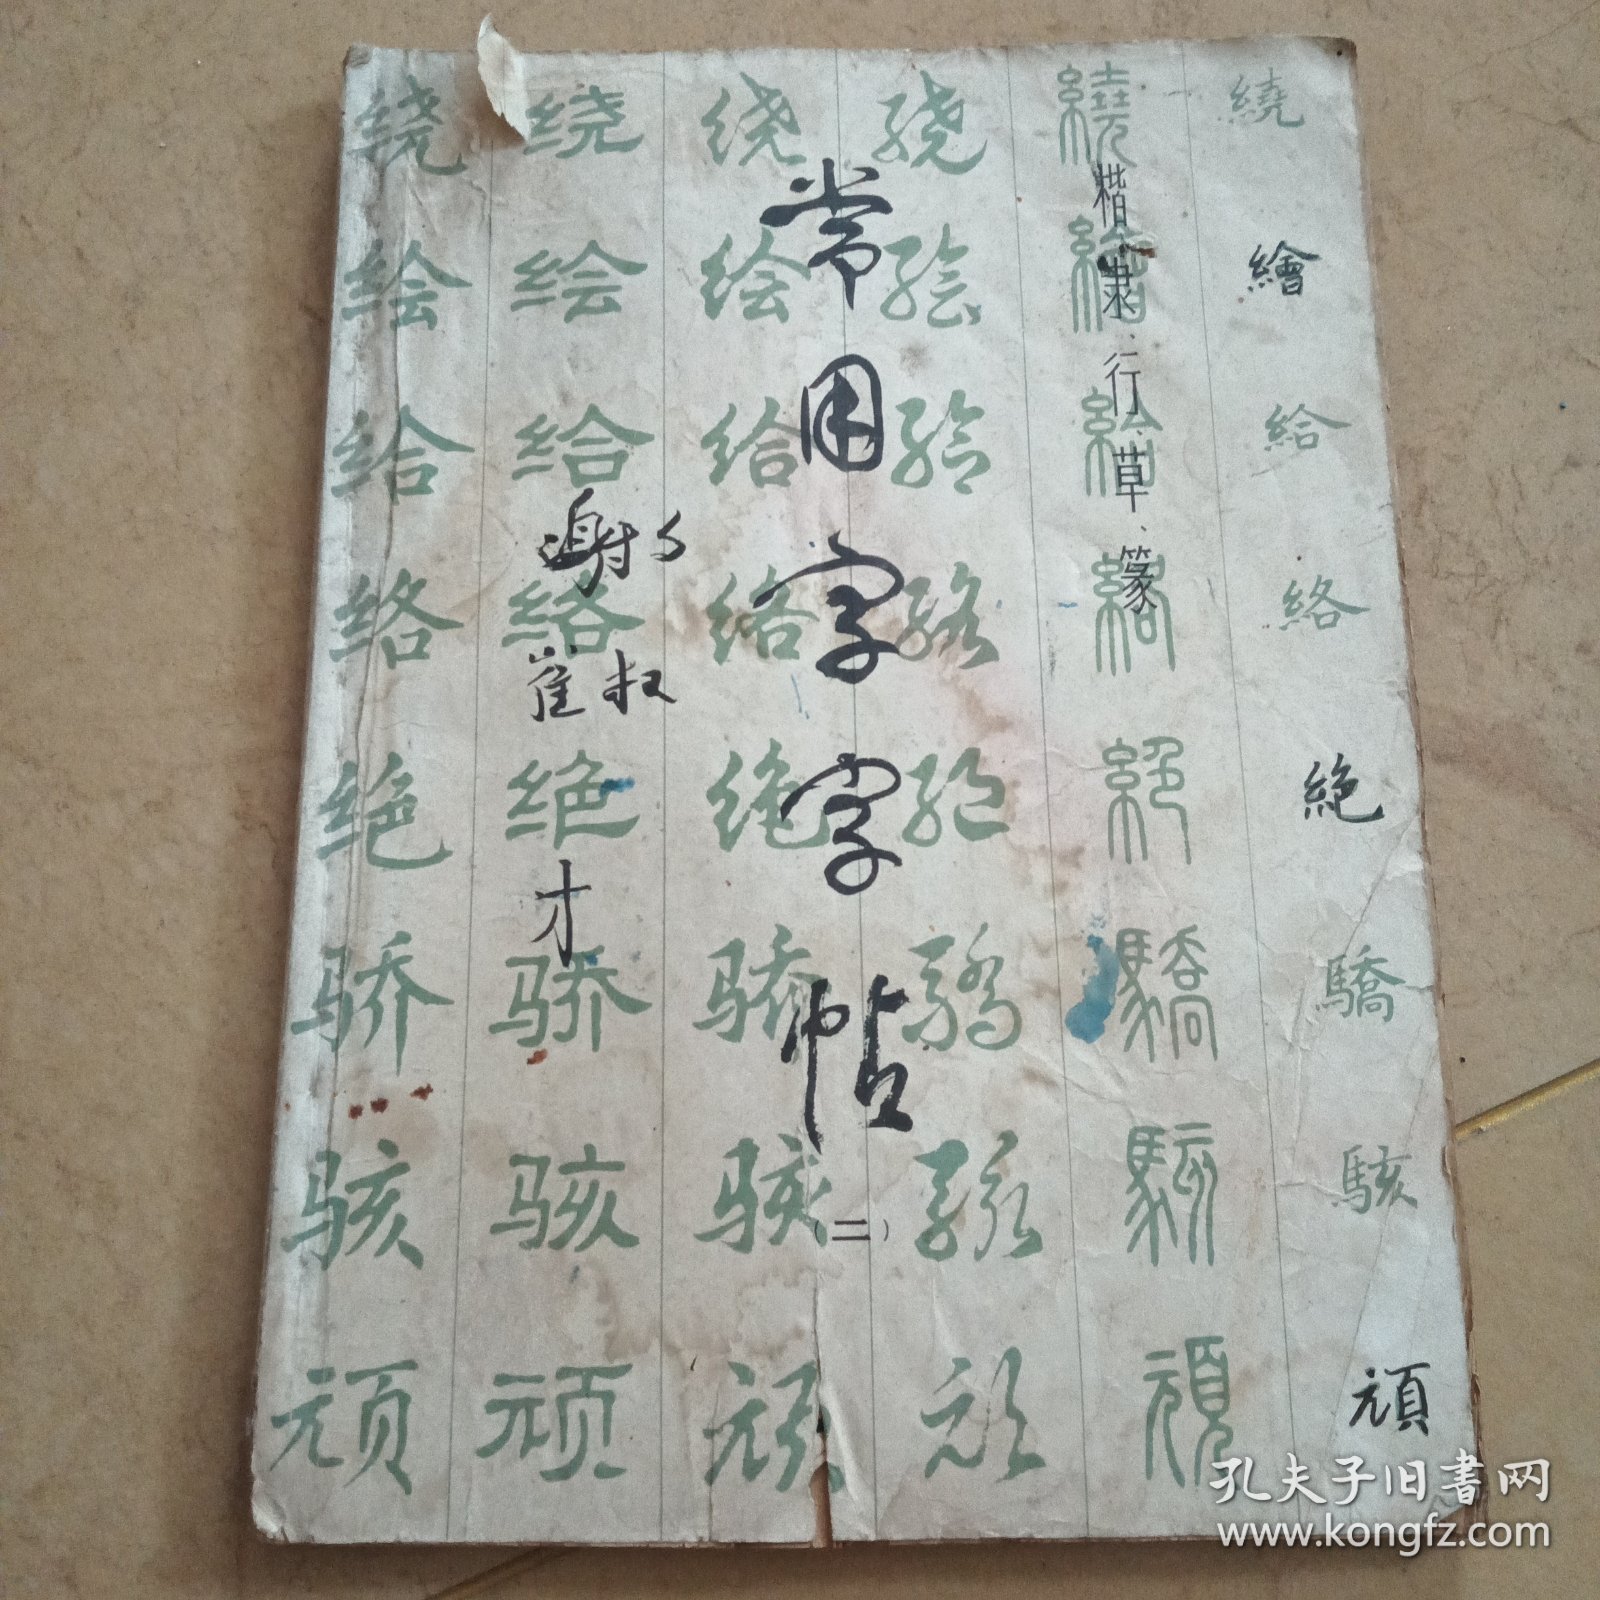 常用字字帖
(二)
楷、隶、行、草、篆
绕 绕 绕 绕 繞 繞
绘 绘 绘 绘 繪 繪
给 给 给 给 給 給
络 络 络 络 絡 絡
绝 绝 绝 绝 絕 絶
骄 骄 骄 骄 驕 驕
骇 骇 骇 骇 駭 駭
顽 顽 顽 顽 頑 頑
谢
崔叔
才
孔夫子旧書网
www.kongfz.com